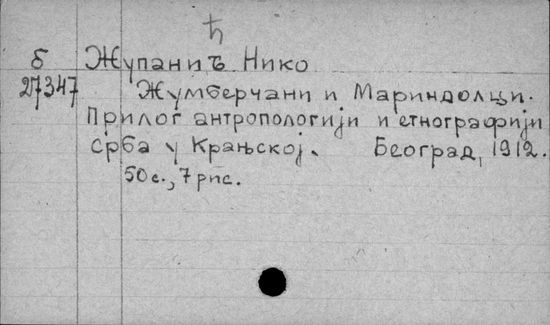 ћ
б Жупаниъ Нико
27347 Жумберчани и Мариндолци.
Прилог антропологији и етнографији
Срба у Крањској. Београд, 1912.
50 с., 7 рис.